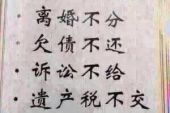 离婚不分
欠债不还
· 诉讼不给
· 遗产税不交